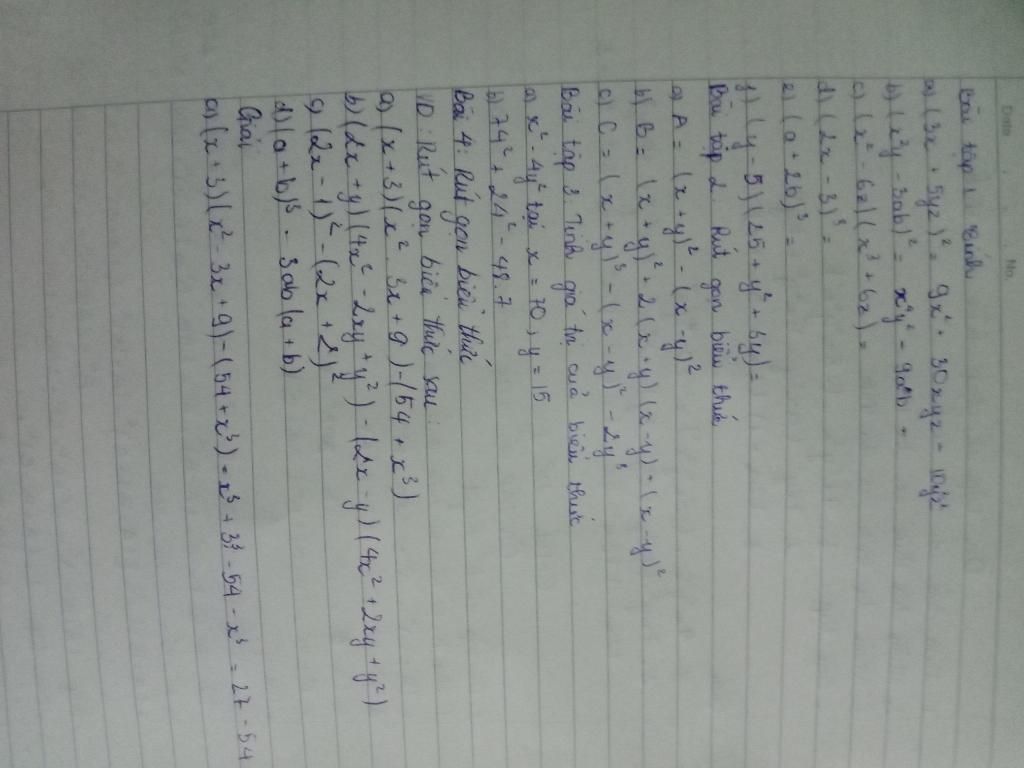 Date No
Bài tập 1. Tính
a) (3x + 5yz)² = 9x² + 30xyz - 10y²
b) (x²y - 3ab)² = x⁴y² - 9ab =
c) (x² - 6z)(x³ + 6z) =
d) (2x - 3)³ =
e) (a + 2b)³ =
f) (y - 5)(25 + y² + 5y) =
Bài tập 2. Rút gọn biểu thức
a) A = (x + y)² - (x - y)²
b) B = (x + y)² + 2(x + y)(x - y) + (x - y)²
c) C = (x + y)³ - (x - y)² - 2y³
Bài tập 3. Tính giá trị của biểu thức
a) x² - 4y² tại x = 70, y = 15
b) 74² + 24² - 48.7
Bài 4: Rút gọn biểu thức
VD: Rút gọn biểu thức sau:
a) (x + 3)(x² - 3x + 9) - (54 + x³)
b) (2x + y)(4x² - 2xy + y²) - (2x - y)(4x² + 2xy + y²)
c) (2x - 1)² - (2x + 2)²
d) (a + b)³ - 3ab(a + b)
Giải
a) (x + 3)(x² - 3x + 9) - (54 + x³) = x³ + 3³ - 54 - x³ = 27 - 54